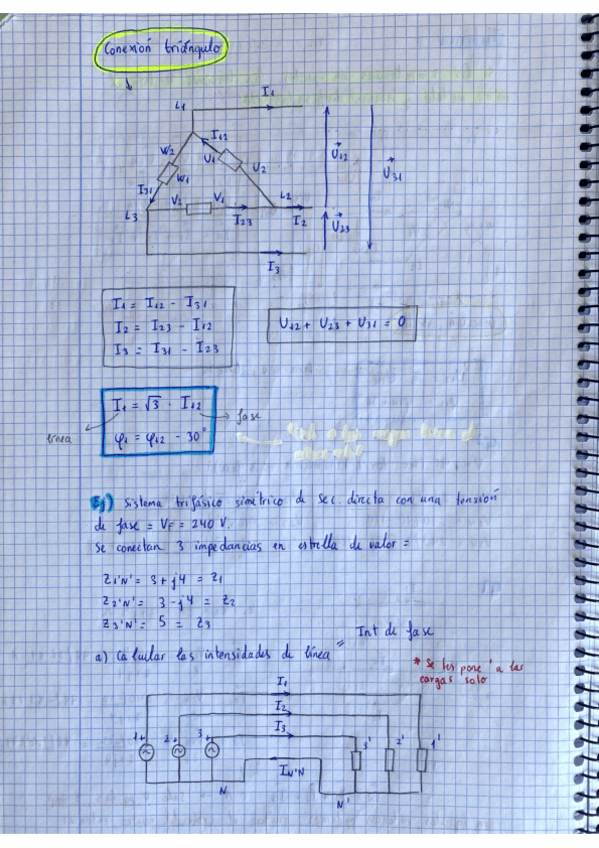 Conexión triángulo
L1
I1
W2
I12
U1
U2
I31
W1
V2
V1
L2
L3
I23
I2
I3
U12
U31
U23
I1 = I12 - I31
I2 = I23 - I12
I3 = I31 - I23
U12 + U23 + U31 = 0
I1 = √3 · I12
φ1 = φ12 - 30°
línea
fase
Ej) Sistema trifásico simétrico de sec. directa con una tensión
de fase = VF = 240 V.
Se conectan 3 impedancias en estrella de valor =
Z1'N' = 3 + j4 = Z1
Z2'N' = 3 - j4 = Z2
Z3'N' = 5 = Z3
a) Calcular las intensidades de línea = Int de fase
* Se les pone ' a las
cargas solo
I1
I2
I3
1+
2+
3+
3'
2'
1'
IN'N
N
N'